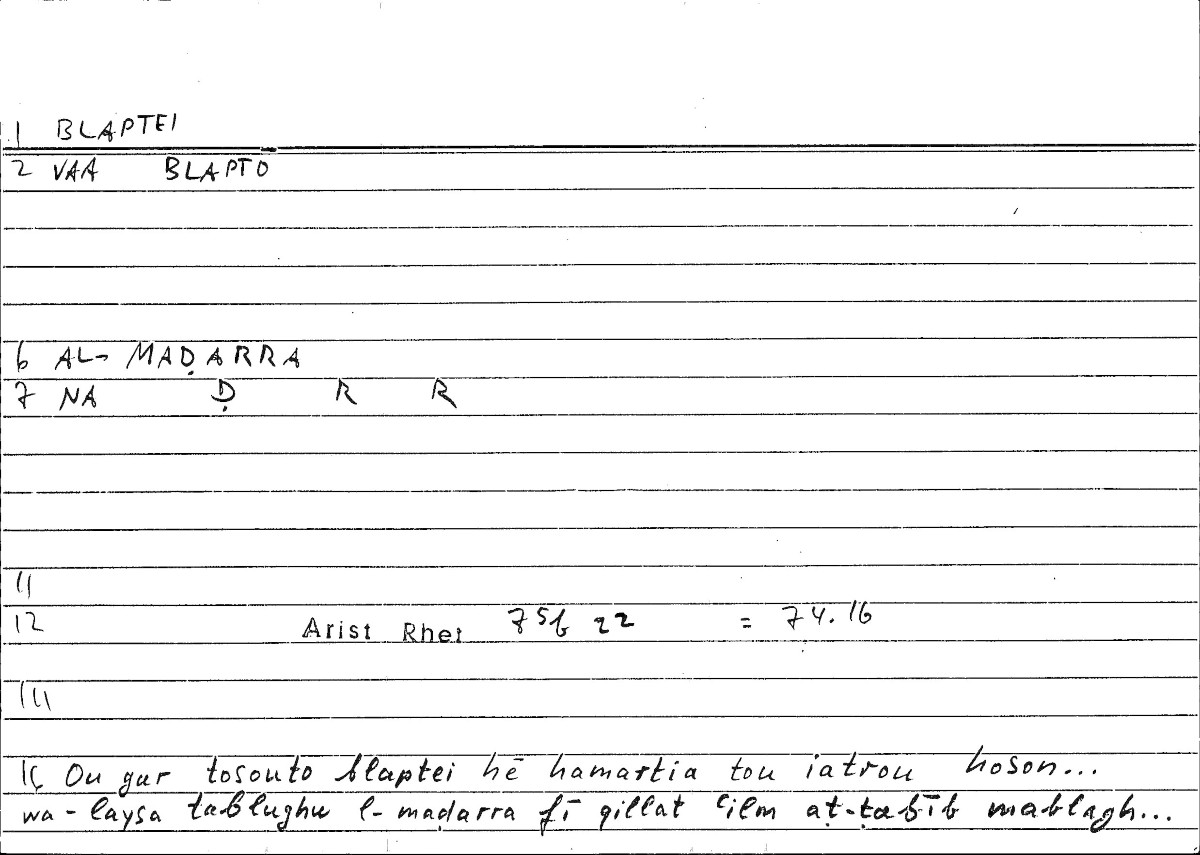 1 BLAPTEI
2 VAA BLAPTO
6 AL-MAḌARRA
7 NA Ḍ R R
11
12 Arist Rhet 75b 22 = 74.16
14
15 Ou gar tosouto blaptei hē hamartia tou iatrou hoson...
wa-laysa tablughu l-maḍarra fī qillat ʿilm aṭ-ṭabīb mablagh...